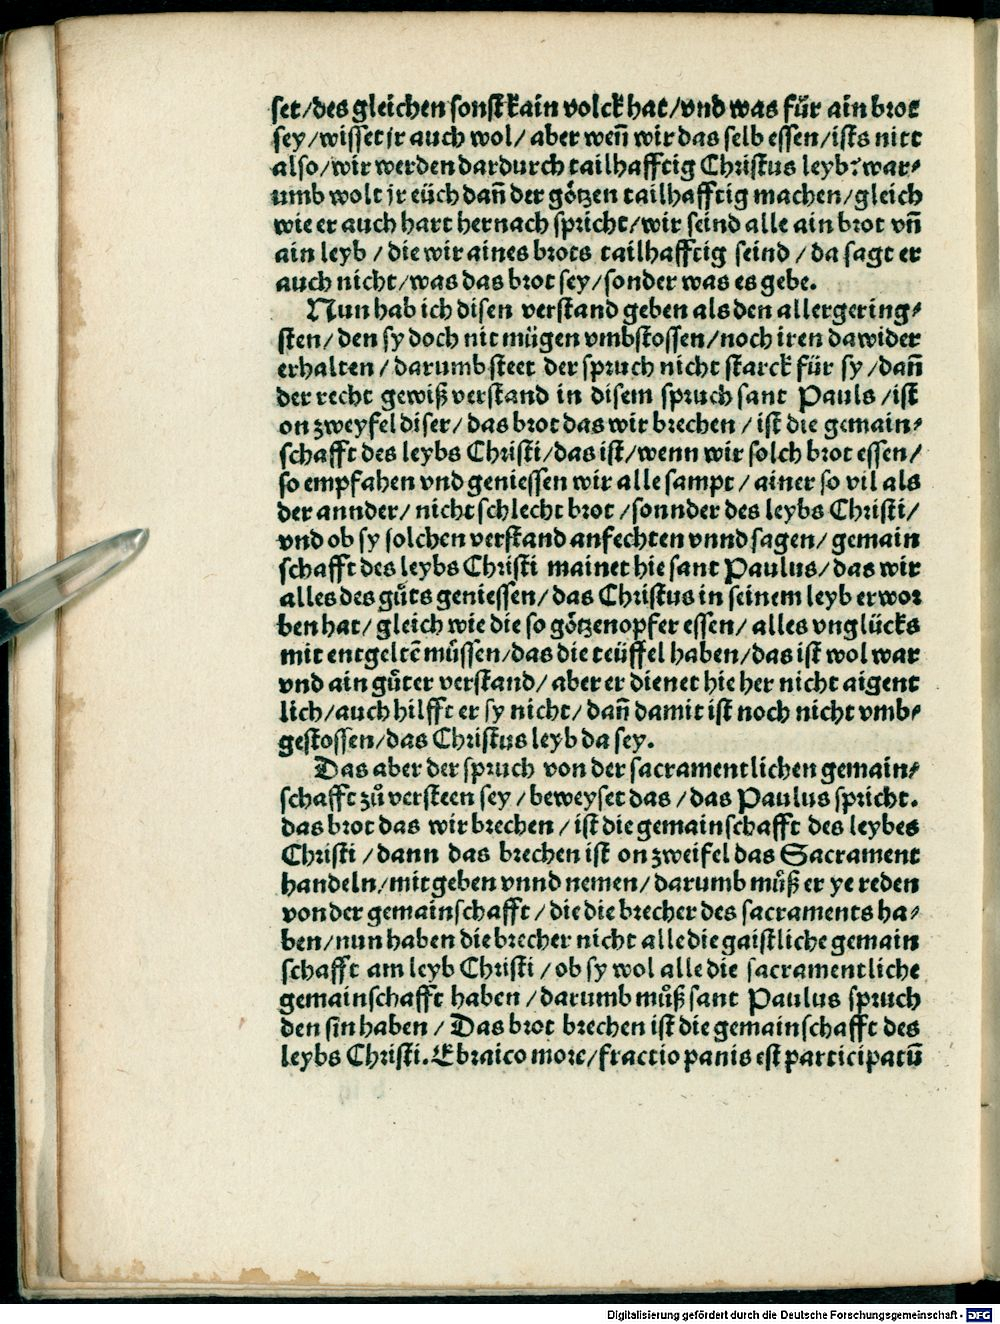 set/des gleichen sonst kain volck hat/vnd was für ain brot
sey/wisset jr auch wol/ aber weñ wir das selb essen/ists nitt
also/wir werden dardurch tailhafftig Christus leyb? war⸗
umb wolt jr eüch dañ der götzen tailhafftig machen/gleich
wie er auch hart hernach spricht/wir seind alle ain brot vñ
ain leyb / die wir aines brots tailhafftig seind / da sagt er
auch nicht/was das brot sey/sonder was es gebe.
Nun hab ich disen verstand geben als den allergering⸗
sten/ den sy doch nit mügen vmbstossen/noch iren dawider
erhalten / darumb steet der spruch nicht starck für sy /dañ
der recht gewiß verstand in disem spruch sant Pauls /ist
on zweyfel diser/ das brot das wir brechen / ist die gemain⸗
schafft des leybs Christi/das ist/wenn wir solch brot essen/
so empfahen vnd geniessen wir alle sampt / ainer so vil als
der annder/ nicht schlecht brot /sonnder des leybs Christi/
vnd ob sy solchen verstand anfechten vnnd sagen/ gemain
schafft des leybs Christi mainet hie sant Paulus/ das wir
alles des gůts geniessen/ das Christus in seinem leyb erwor
ben hat/ gleich wie die so götzenopfer essen/ alles vnglücks
mit entgeltē müssen/das die teüffel haben/das ist wol war
vnd ain gůter verstand/ aber er dienet hie her nicht aigent
lich/auch hilfft er sy nicht/ dañ damit ist noch nicht vmb⸗
gestossen/das Christus leyb da sey.
Das aber der spruch von der sacramentlichen gemain⸗
schafft zů versteen sey / beweyset das / das Paulus spricht.
das brot das wir brechen / ist die gemainschafft des leybes
Christi / dann das brechen ist on zweifel das Sacrament
handeln/mit geben vnnd nemen/ darumb můß er ye reden
von der gemainschafft / die die brecher des sacraments ha⸗
ben/nun haben die brecher nicht alle die gaistliche gemain
schafft am leyb Christi / ob sy wol alle die sacramentliche
gemainschafft haben / darumb můß sant Paulus spruch
den sin haben / Das brot brechen ist die gemainschafft des
leybs Christi. Ebraico more/fractio panis est participatū
Digitalisierung gefördert durch die Deutsche Forschungsgemeinschaft - DFG